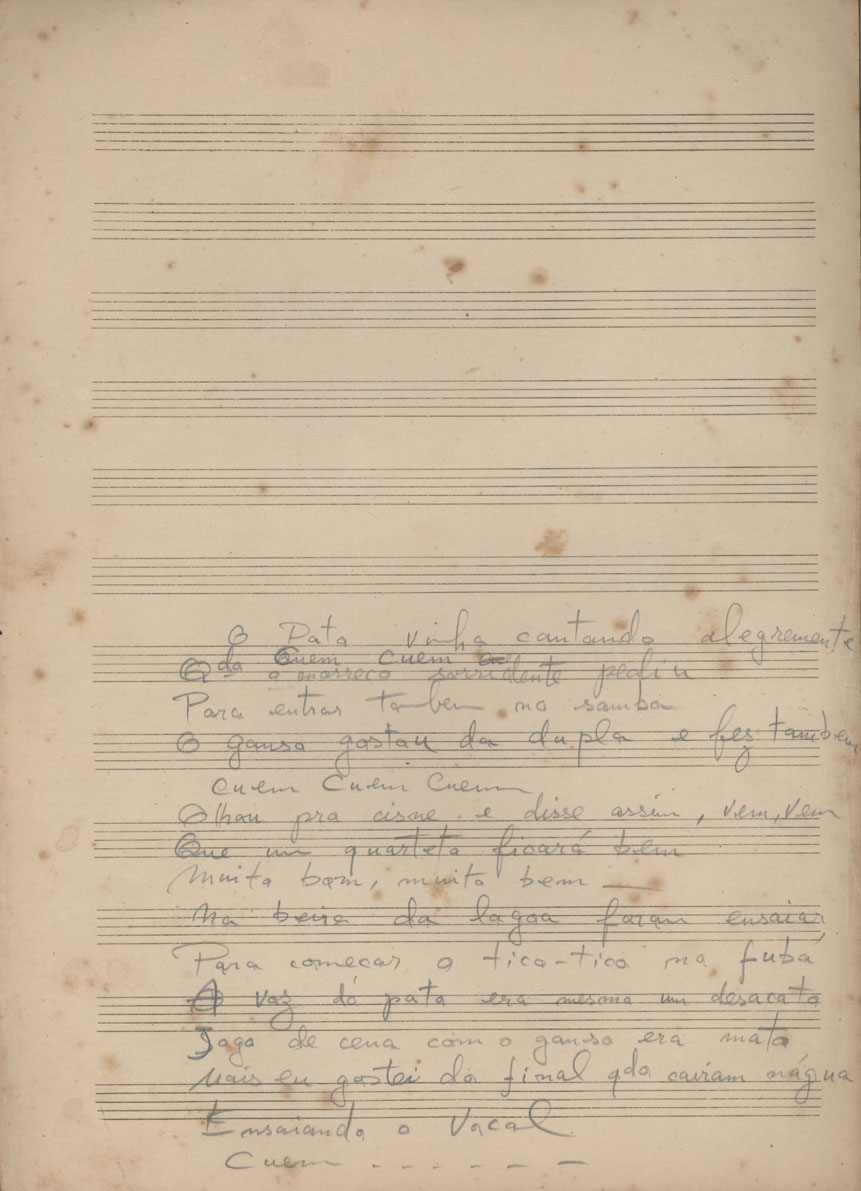 O Pato vinha cantando alegremente
Quem Cuem
qdo o marreco sorridente pediu
Para entrar tambem no samba
O ganso gostou da dupla e fez tambem
cuem Cuem Cuem
Olhou pro cisne e disse assim, vem, vem
Que um quarteto ficará bem
Muito bom, muito bem
Na beira da lagoa foram ensaiar
Para começar o tico-tico no fubá
A voz do pato era mesmo um desacato
Jogo de cena com o ganso era mato
Mais eu gostei do final qdo cairam nágua
Ensaiando o Vocal
Cuem - - - - - -